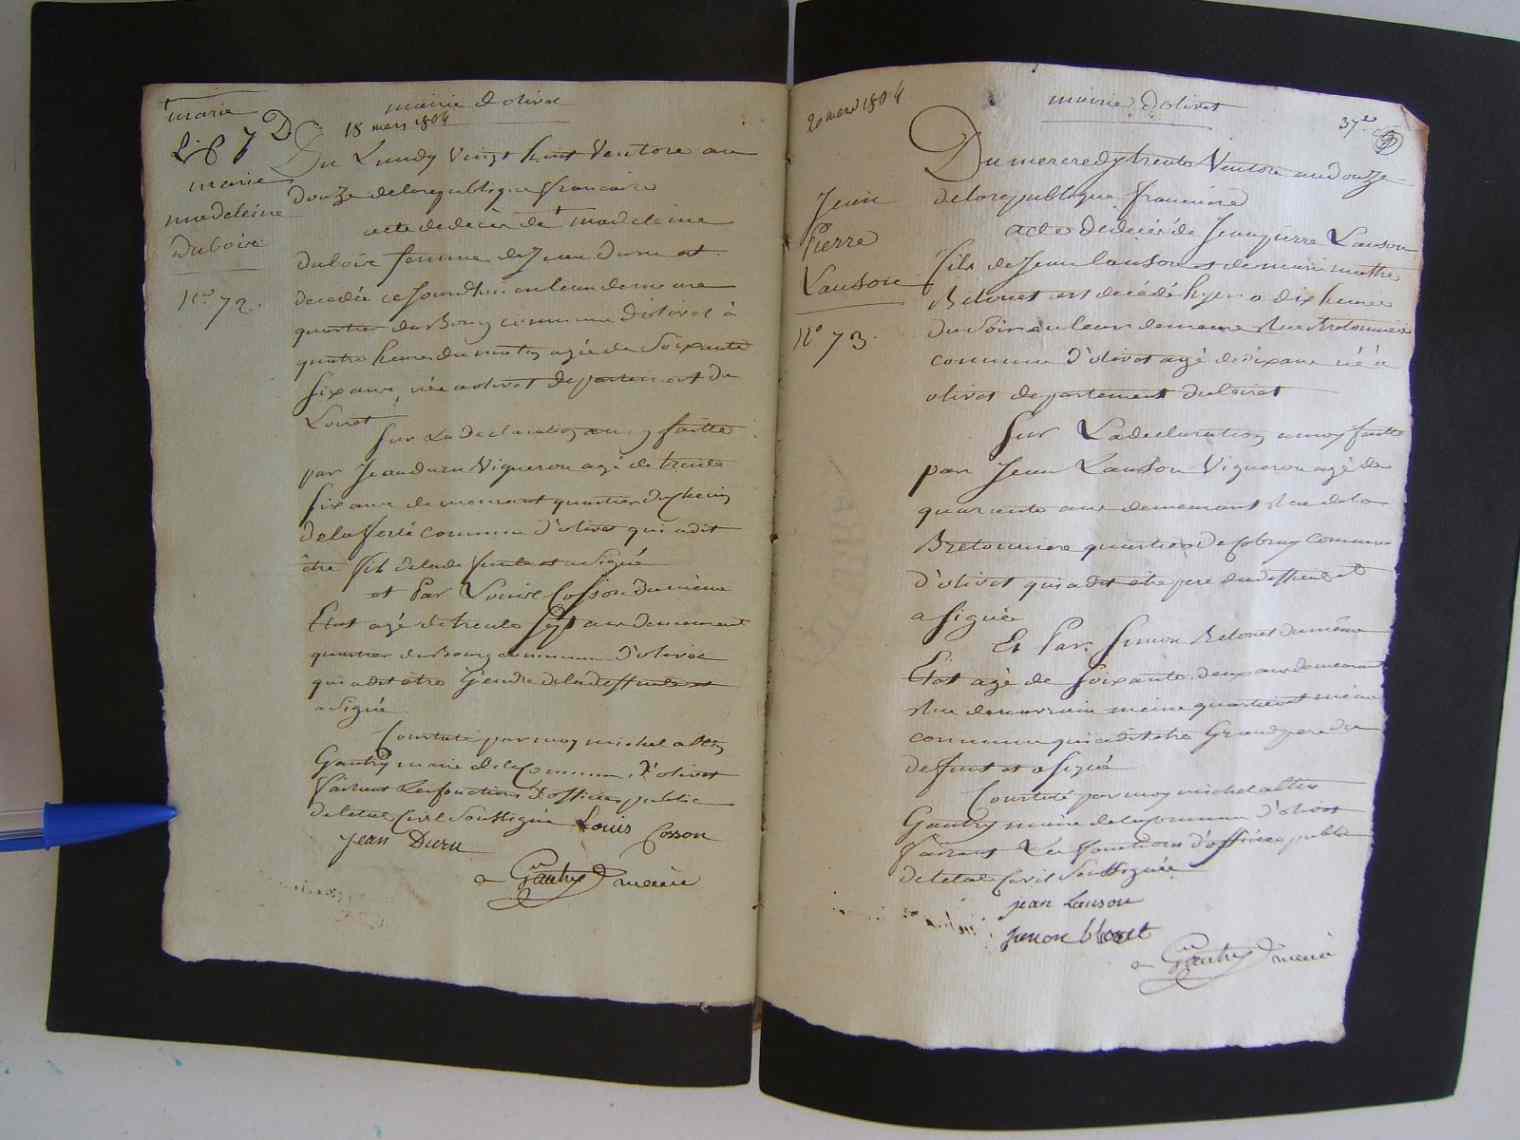 marie
mairie d'olivet
18 mars 1804
Du Lundy Vingt huit Ventose an
marie
madeleine
duboise
N.o 72.
douze de la republique francaise
acte de decès de madeleine
duboise femme de Jean Duru
decedée ce Jourdhui en leur demeure
quartier du Bourg commune d'olivet à
quatre heures du matin agée de Soixante
Six ans, née a olivet departement du
Loiret
Sur La declaration a moy faitte
par Jean duru Vigneron agé de trente
Six ans demeurant quartier du chemin
de la ferté commune d'olivet qui a dit
être fils de la defunte et a Signé
et Par Louis Cosson du même
Etat agé de trente Sept ans demeurant
quartier du Bourg commune d'olivet
qui a dit etre Gendre de la deffunte et
a Signé
Constaté par moy michel
Gautry maire de la Commune d'olivet
faisant Les fonctions d'officier public
de l'etat Civil Soussigné Louis Cosson
Jean Duru
Gautry maire
20 mars 1804
mairie d'olivet
37.e
Jean
Pierre
Lauson
N.o 73.
Du mercredy trente Ventose an douze
de la republique francaise
acte de decès de Jean pierre Lauson
fils de Jean Lauson et de marie
Belouet est decédé hyer a dix heures
du Soir en leur demeure Rue Bretonniere
commune d'olivet agé de six ans né à
olivet departement du loiret
Sur La declaration a moy faitte
par Jean Lauson Vigneron agé de
quarante ans demeurant Rue de la
Bretonniere quartier de commune
d'olivet qui a dit etre pere du deffunt et
a Signé
Et Par Simon Belouet du même
Etat agé de Soixante deux ans demeurant
même quartier et même
commune qui a dit etre Grand pere du
defunt et a Signé
Constaté par moy michel
Gautry maire de la commune d'olivet
faisant Les fonctions d'officier public
de l'etat Civil Soussigné
jean Lauson
simon blouet
Gautry maire